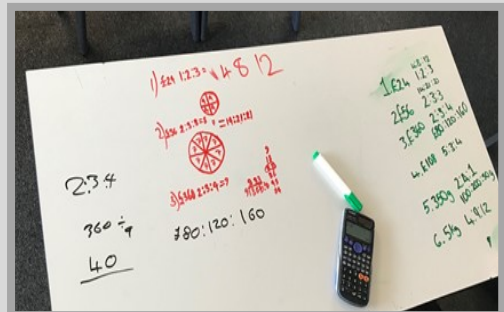 1) £24 1:2:3 = 4 8 12
2) £56 2:3:3 = = 14:21:21
3) £360 2:3:4 = ?
2:3:4
360 ÷ 9
40
£80:120:160
1. £24 1:2:3
4:8:12
2. £56 2:3:3
14:21:21
3. £360 2:3:4
£80:120:160
4. £108 5:3:4
5. 350g 2:4:1
100:200:50g
6. 5kg 4:9:12